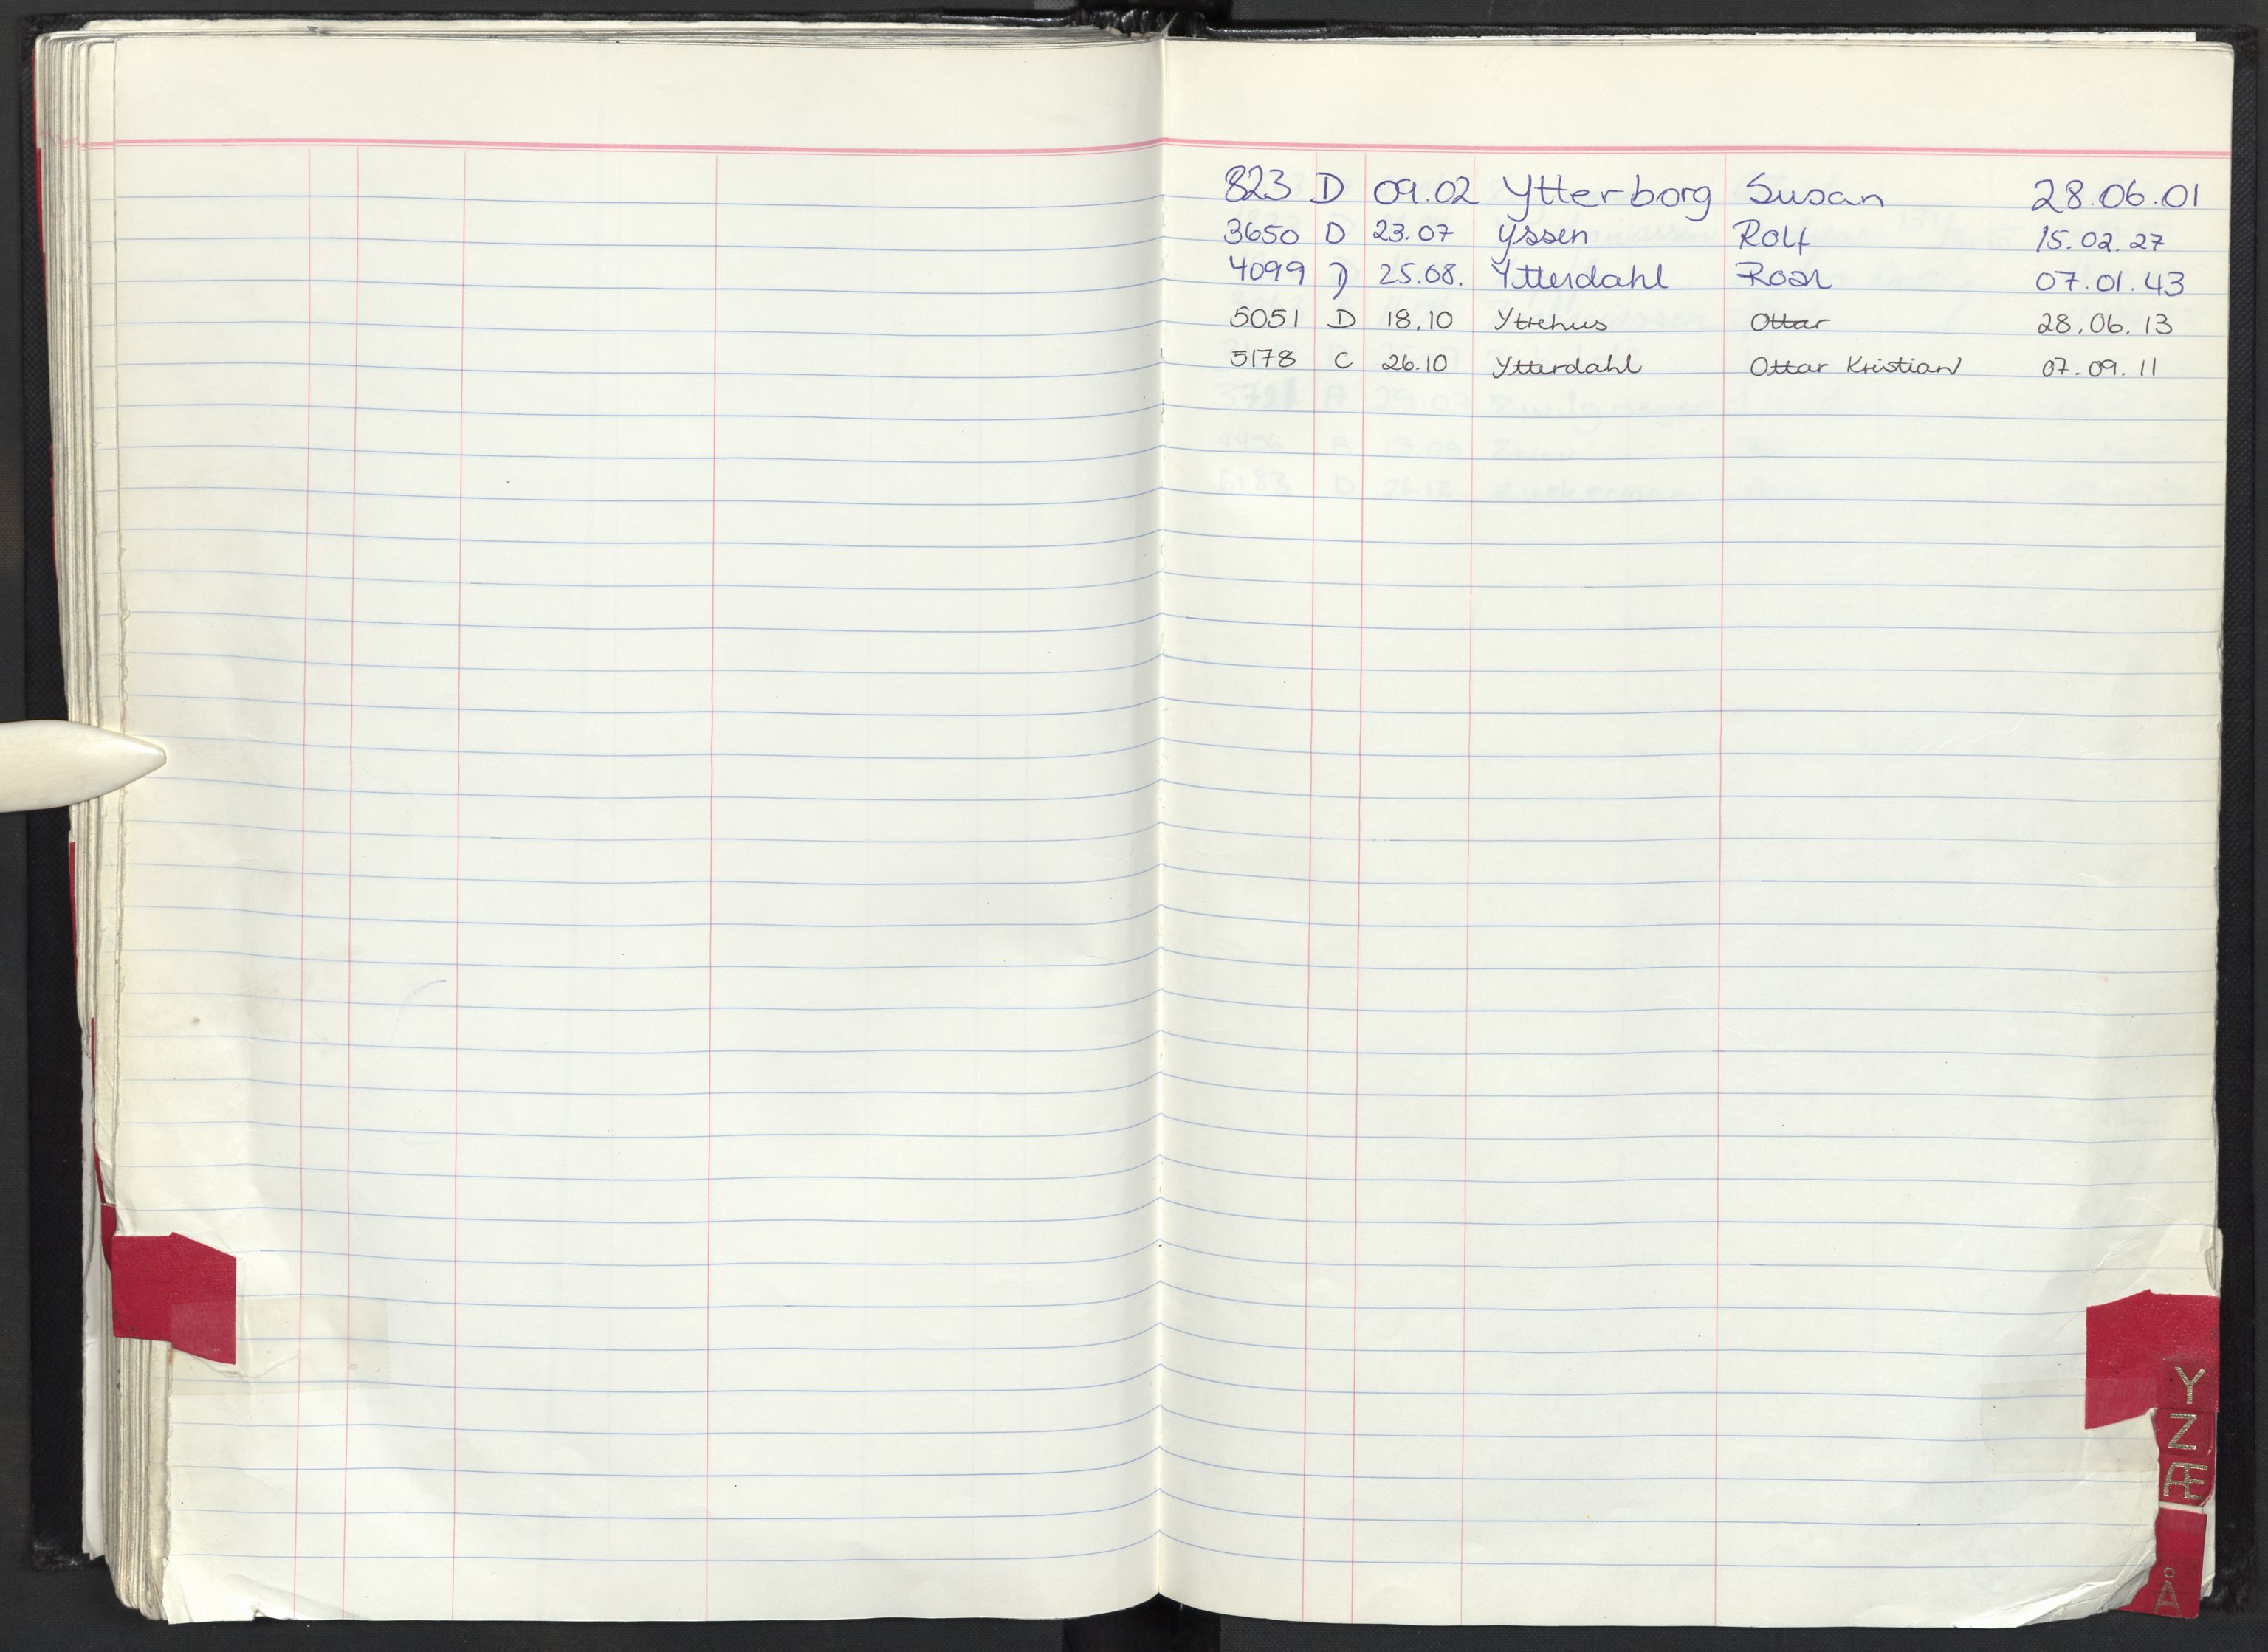 823 D 09.02 Ytterborg Susan 28.06.01
3650 D 23.07 Yssen Rolf 15.02.27
4099 D 25.08. Ytterdahl Roar 07.01.43
5051 D 18.10 Yttehus Ottar 28.06.13
5178 C 26.10 Ytterdahl Ottar Kristian 07.09.11
Y
Z
Æ
Å